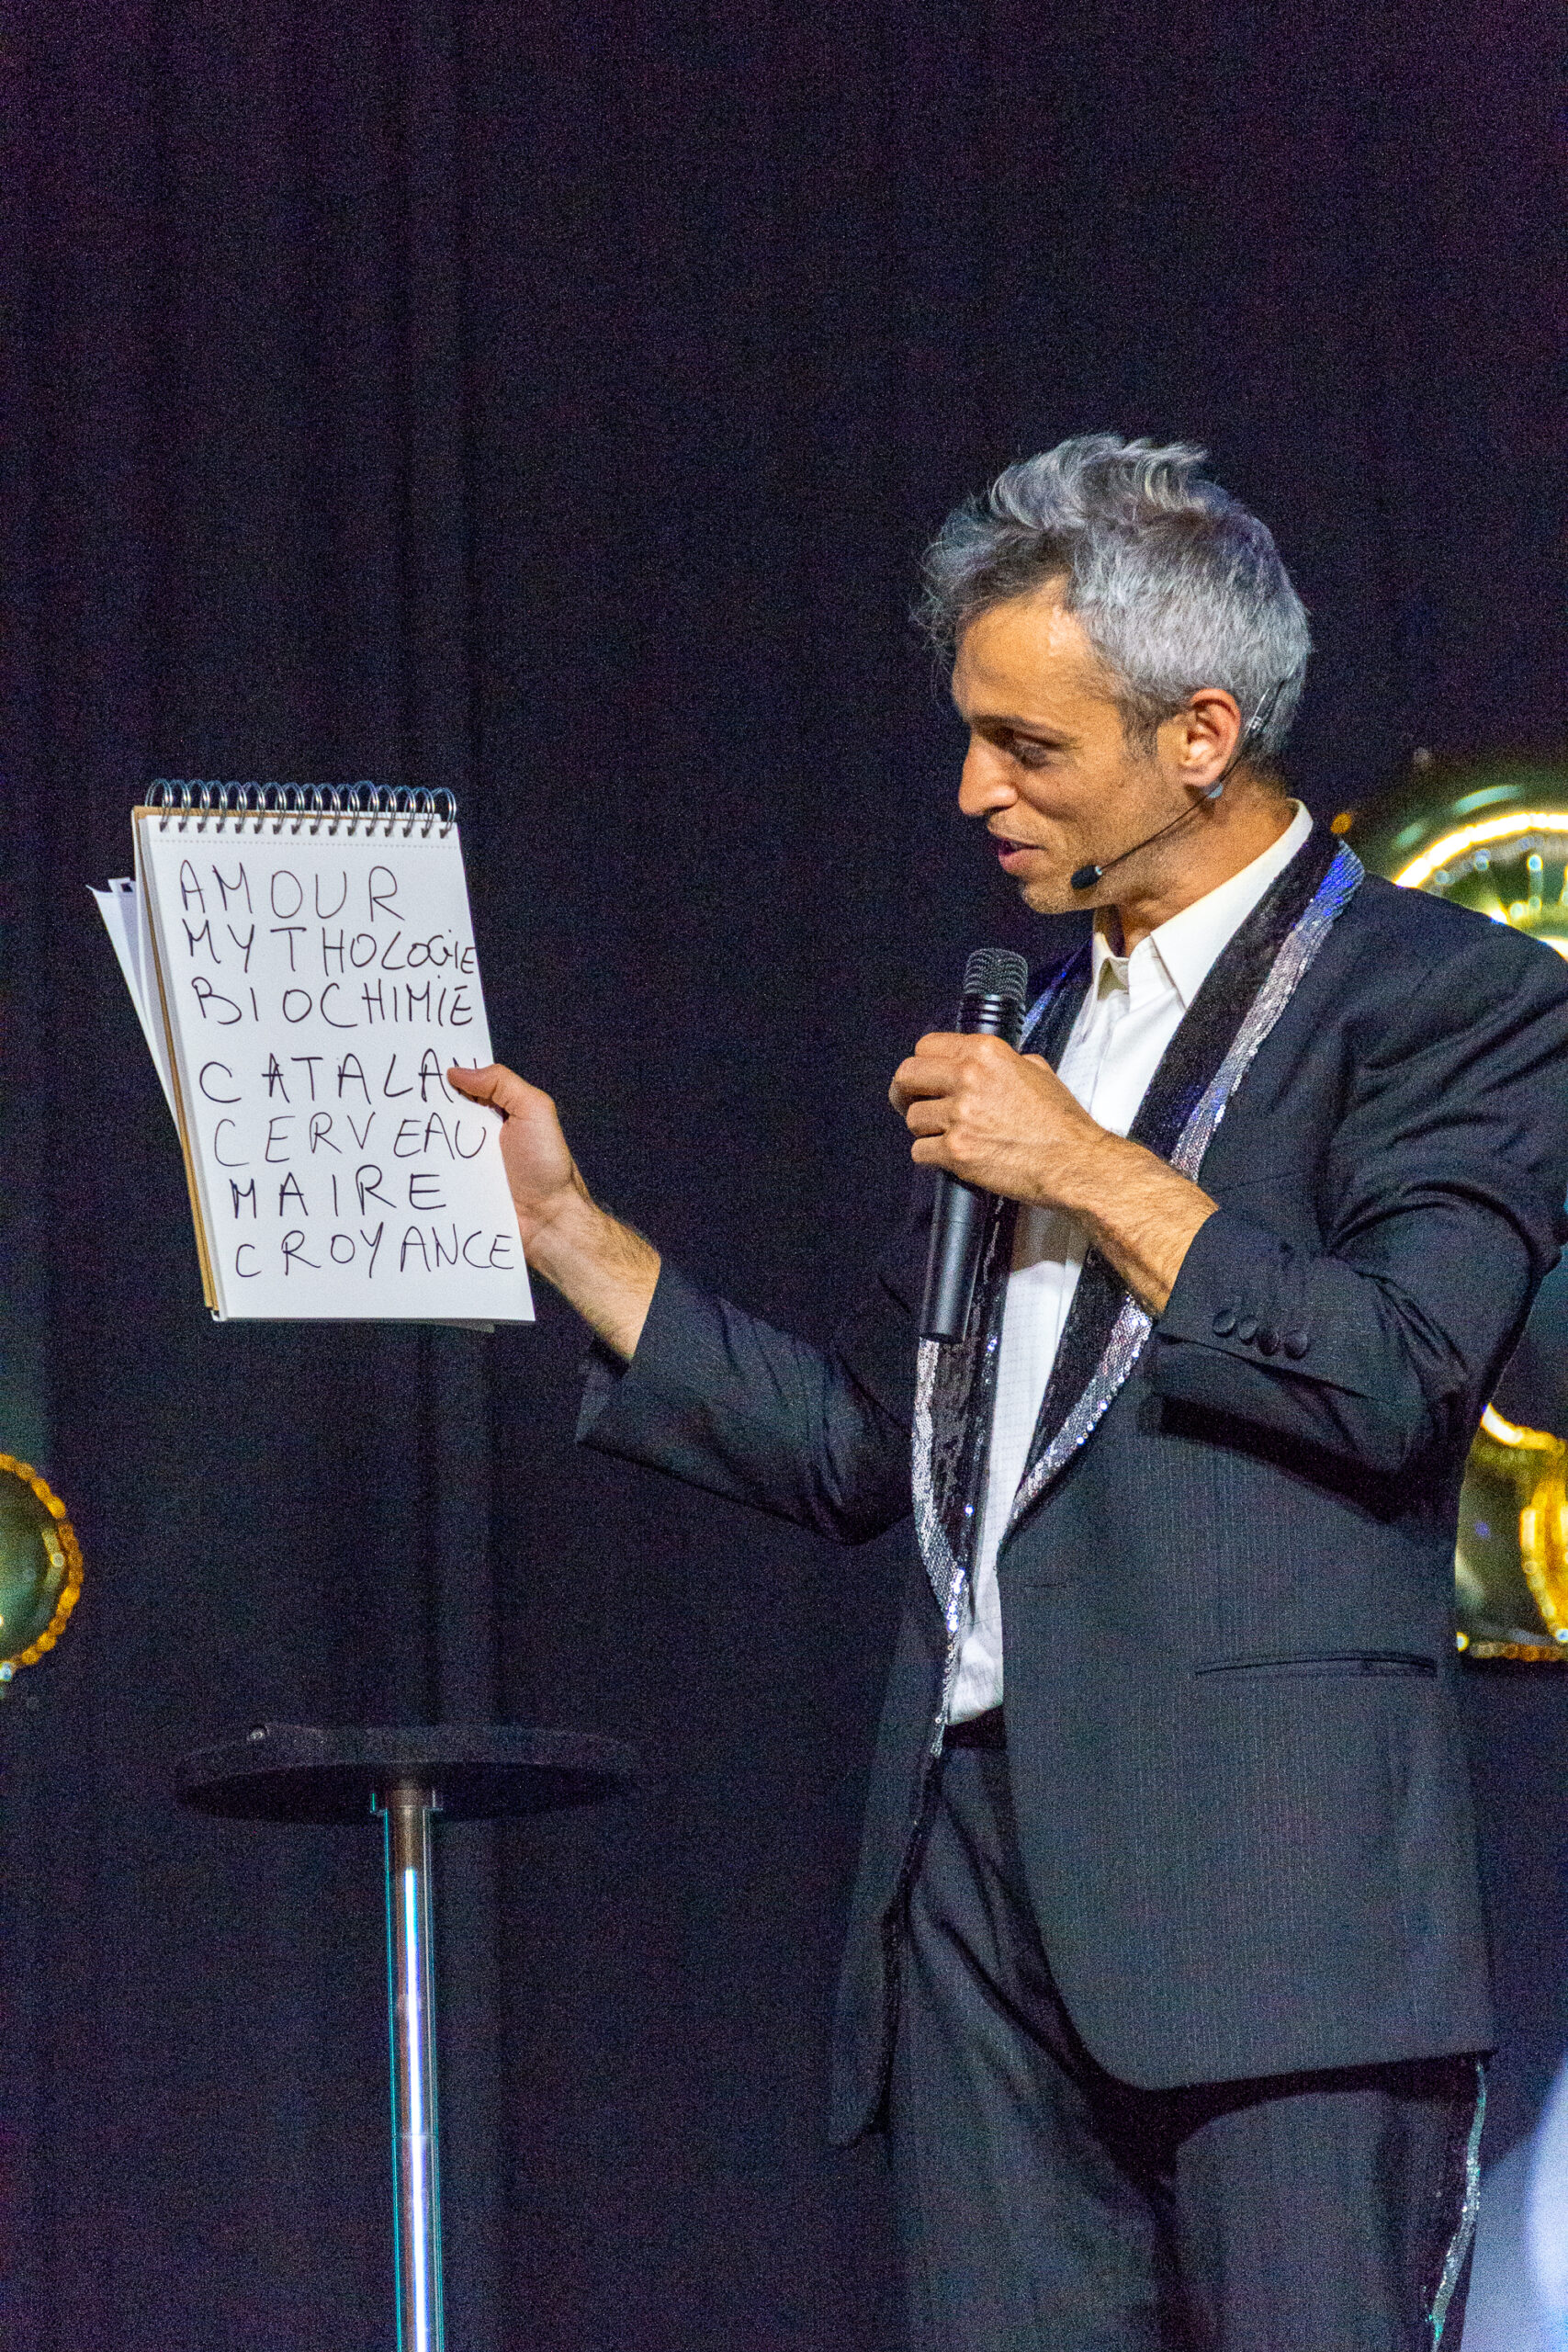 AMOUR
MYTHOLOGIE
BIOCHIMIE
CATALAN
CERVEAU
MAIRE
CROYANCE